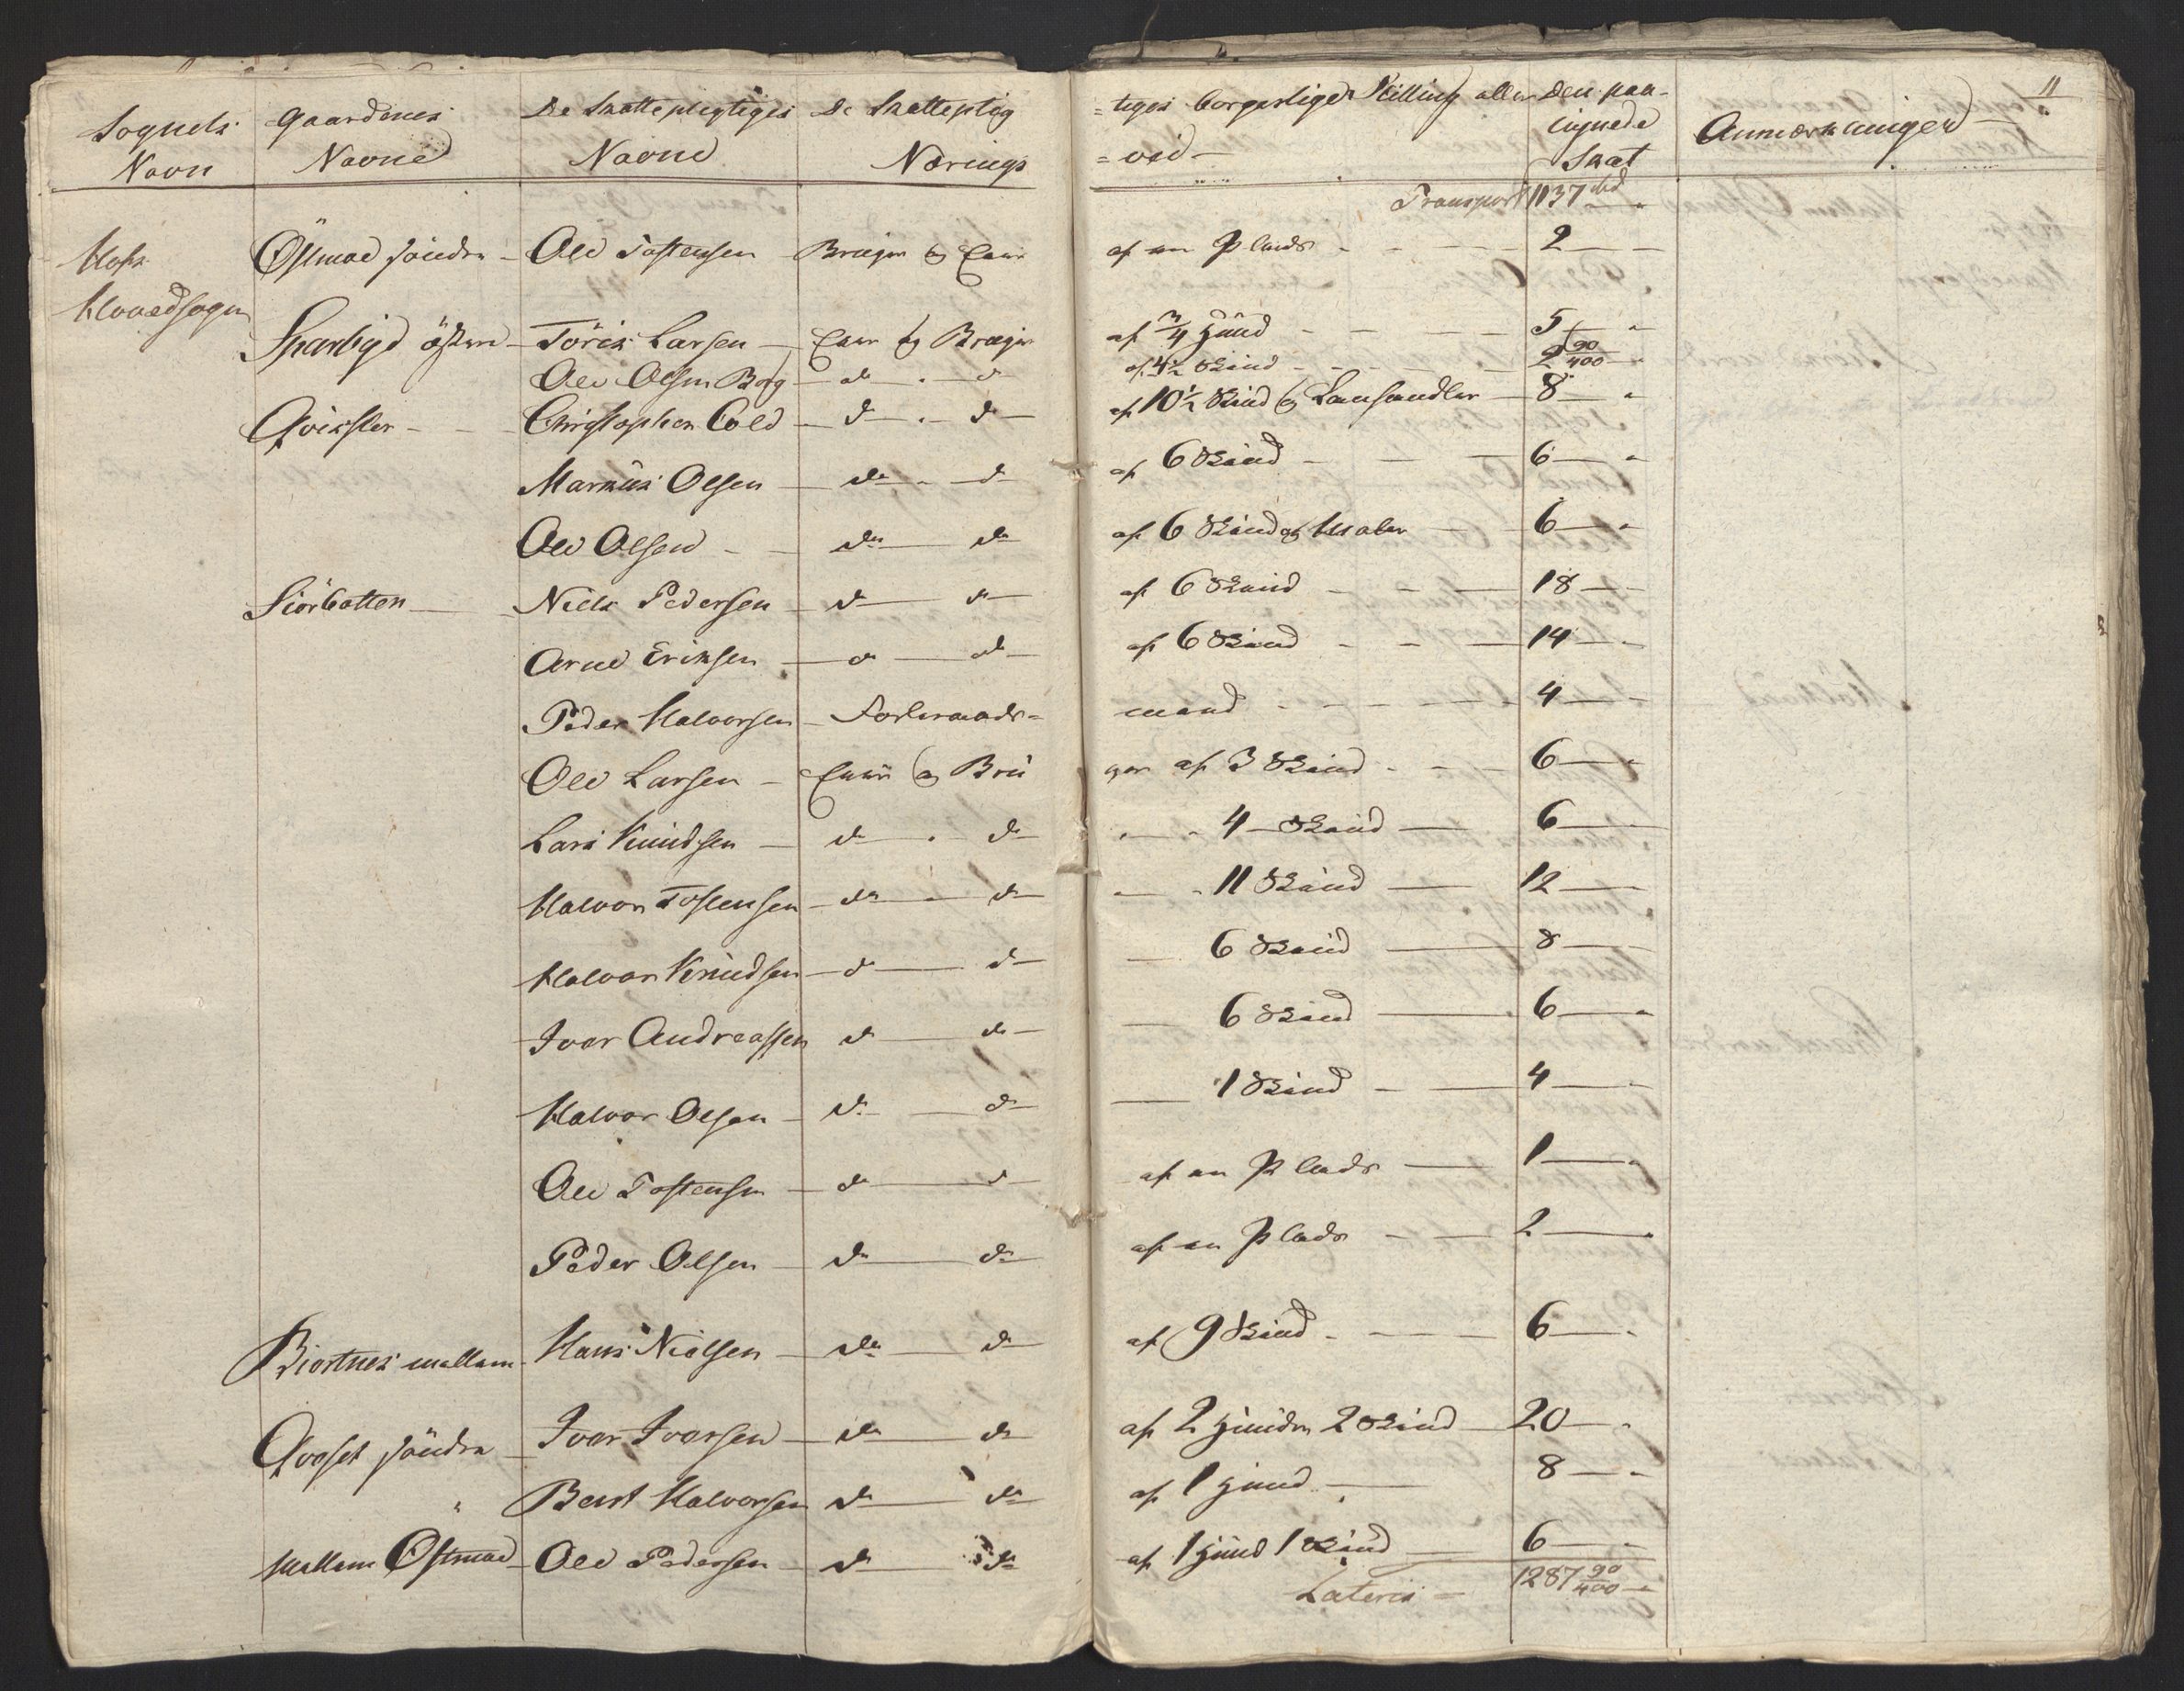 11
Sognets Gaardenes De Skattepligtiges De Skatteplig =tiges borgerlige Stilling eller Den paa-
Navn Navne Navne Nærings =vei lignede Anmærkninger
Skat
Transport 1137
Hofs Østmoe søndre Ole Tostensen Bruger og Eier af en Plads 2
Hovedsogn
östre Töris Larsen Eier og Bruger af 3/4 Huud 5
Ole Olsen Borg d d af 4½ Skind 2 90/400
Qvikster Christopher Cold d d af 10½ Skind og 8
Markus Olsen do d af 6 Skind 6
Ole Olsen do do af 6 Skind og Maler 6
Siörbotten Niels Pedersen d d af 6 Skind 18
Arne Eriksen d d af 6 Skind 14
Peder Halvorsen Forlovads= mand 4
Ole Larsen Eier og Bru ger af 3 Skind 6
Lars Knudsen d d 4 Skind 6
Halvor Tostensen do do 11 Skind 12
Halvor Knudsen d d 6 Skind 8
Iver Andreassen d do 6 Skind 6
Halvor Olsen d d 1 Skind 4
Ole Tostensen d d af en Plads 1
Peder Olsen do do af en Plads 2
Biørtnes mellem Hans Nielsen do d af 9 Skind 6
søndre Iver Iversen do do af 2 Huuder 2 Skind 20
" Bent Halvorsen do do af 1 Huud 8
Mellem Østmoe Ole Pedersen d do af 1 Huud 1 Skind 6
Lateris 1287 90/400